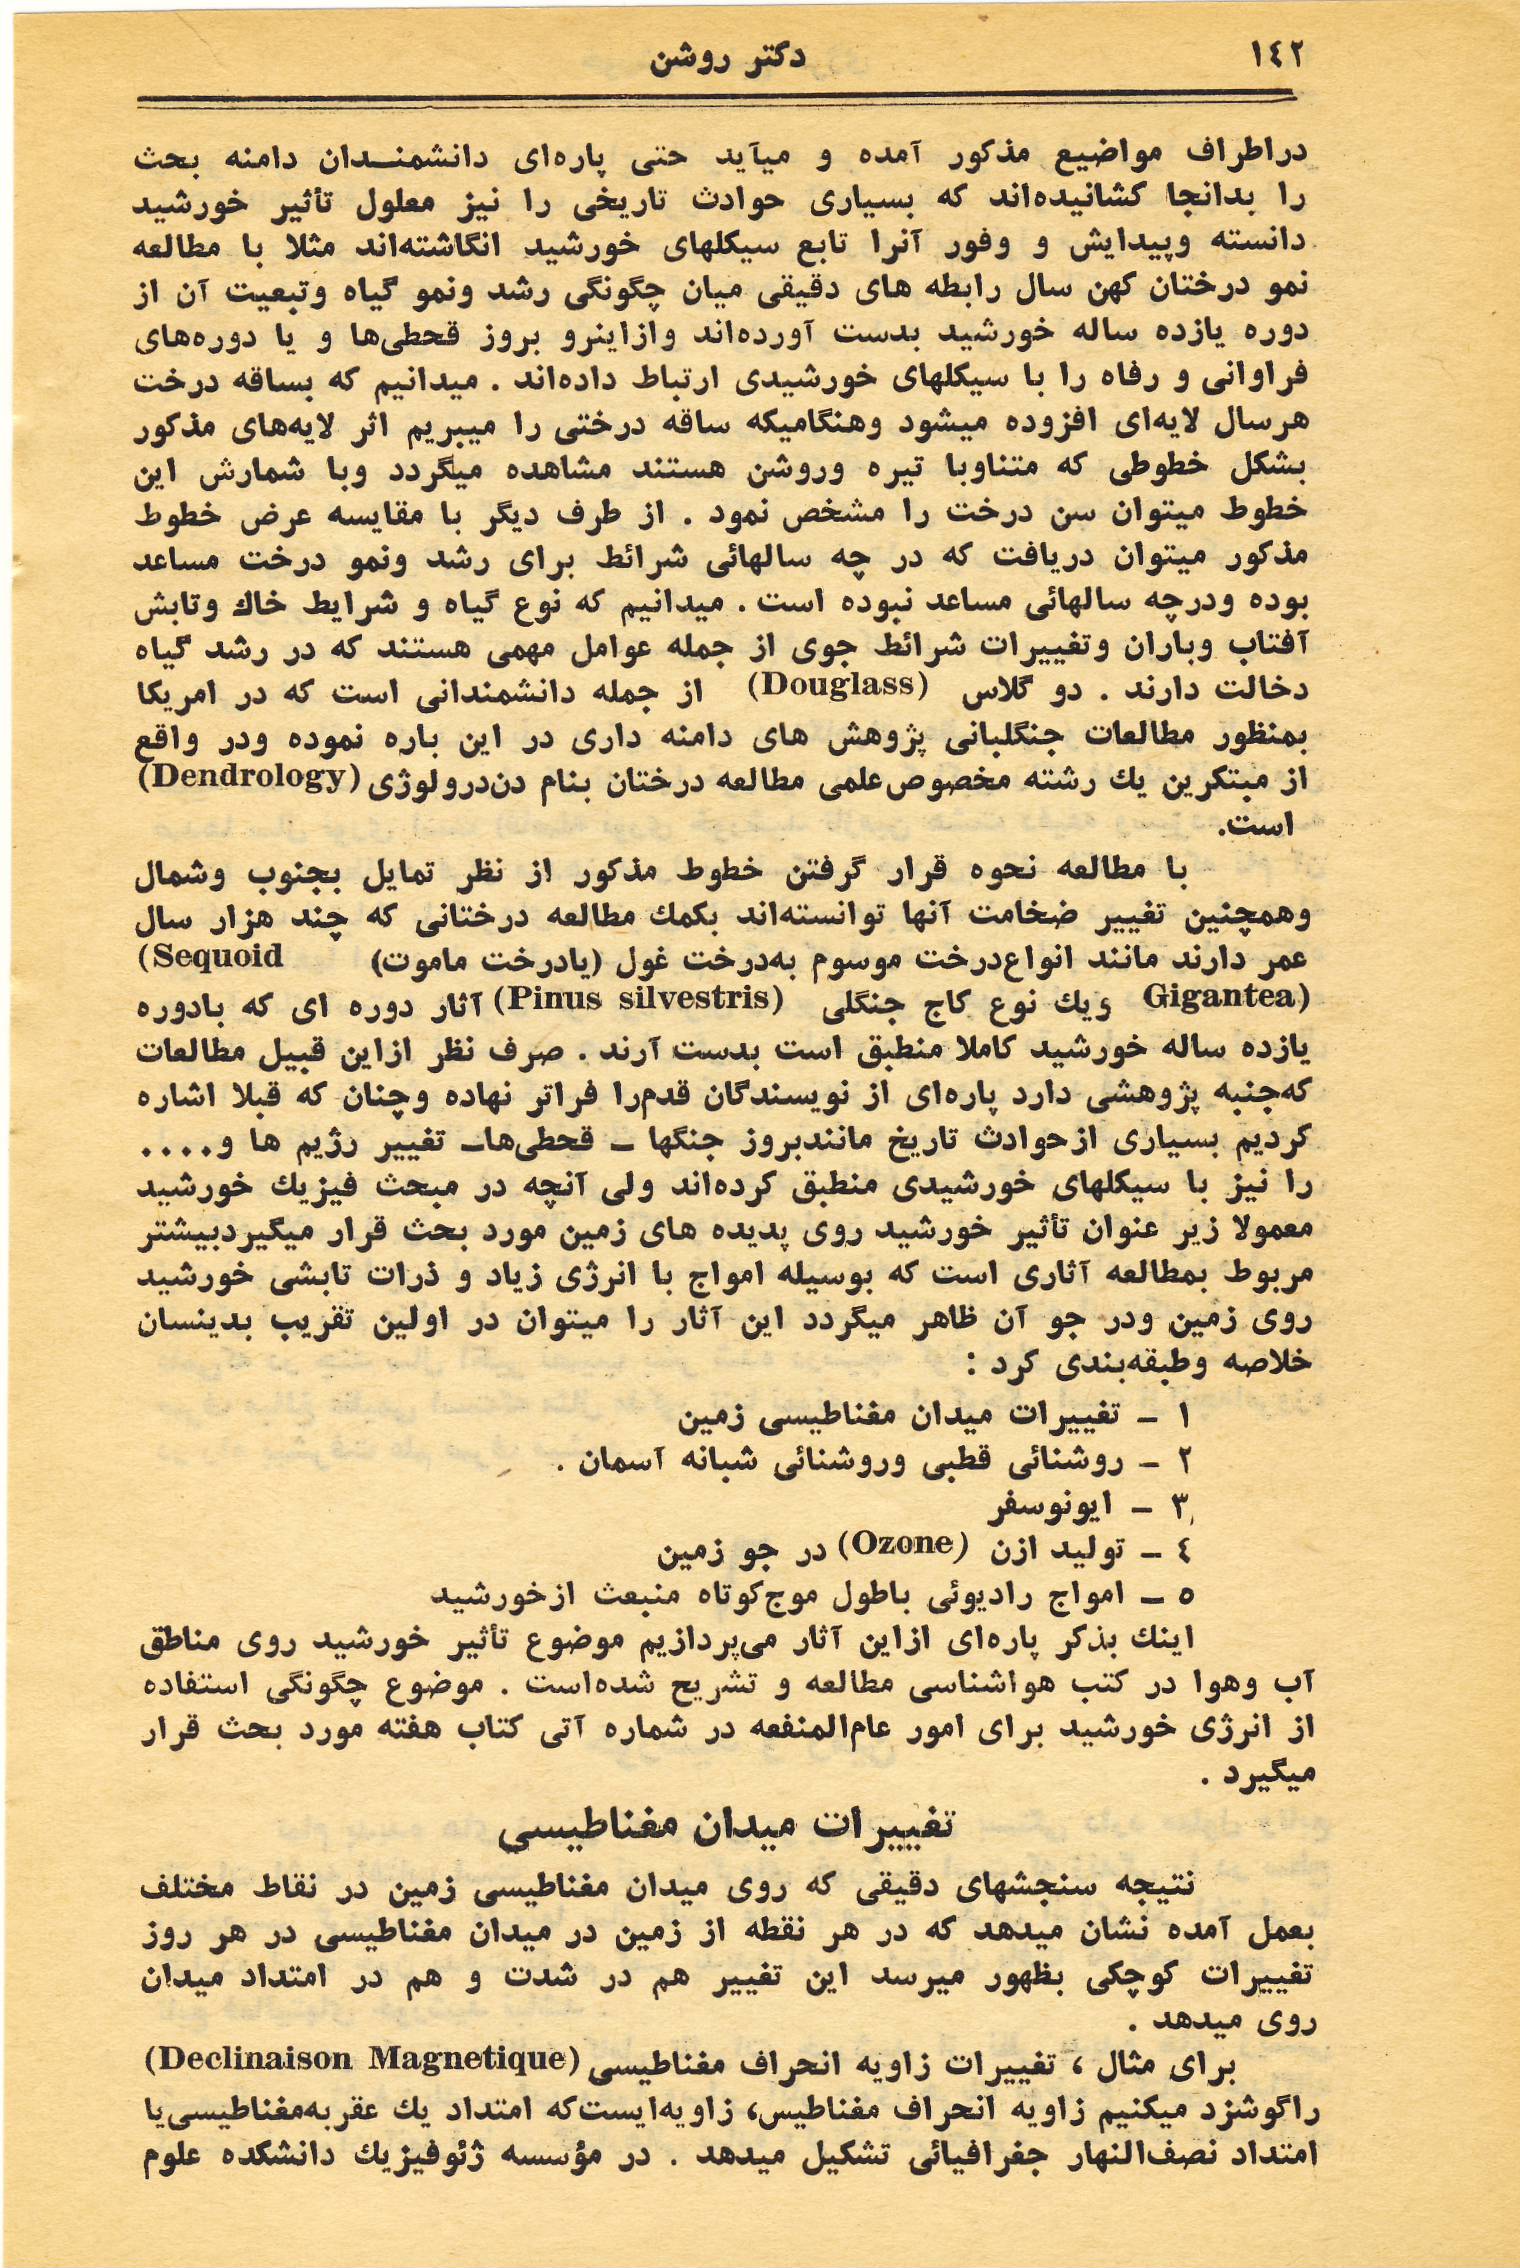 ۱٤۲
دکتر روشن
دراطراف مواضیع مذکور آمده و میآید حتی پاره‌ای دانشمنـــدان دامنه بحث
را بدانجا کشانیده‌اند که بسیاری حوادث تاریخی را نیز معلول تأثیر خورشید
دانسته وپیدایش و وفور آنرا تابع سیکلهای خورشید انگاشته‌اند مثلا با مطالعه
نمو درختان کهن سال رابطه های دقیقی میان چگونگی رشد ونمو گیاه وتبعیت آن از
دوره یازده ساله خورشید بدست آورده‌اند وازاینرو بروز قحطی‌ها و یا دوره‌های
فراوانی و رفاه را با سیکلهای خورشیدی ارتباط داده‌اند . میدانیم که بساقه درخت
هرسال لایه‌ای افزوده میشود وهنگامیکه ساقه درختی را میبریم اثر لایه‌های مذکور
بشکل خطوطی که متناوبا تیره وروشن هستند مشاهده میگردد وبا شمارش این
خطوط میتوان سن درخت را مشخص نمود . از طرف دیگر با مقایسه عرض خطوط
مذکور میتوان دریافت که در چه سالهائی شرائط برای رشد ونمو درخت مساعد
بوده ودرچه سالهائی مساعد نبوده است . میدانیم که نوع گیاه و شرایط خاك وتابش
آفتاب وباران وتغییرات شرائط جوی از جمله عوامل مهمی هستند که در رشد گیاه
دخالت دارند . دو گلاس (Douglass) از جمله دانشمندانی است که در امریکا
بمنظور مطالعات جنگلبانی پژوهش های دامنه داری در این باره نموده ودر واقع
از مبتکرین یك رشته مخصوص‌علمی مطالعه درختان بنام دن‌درولوژی (Dendrology)
است.
با مطالعه نحوه قرار گرفتن خطوط مذکور از نظر تمایل بجنوب وشمال
وهمچنین تغییر ضخامت آنها توانسته‌اند بکمك مطالعه درختانی که چند هزار سال
عمر دارند مانند انواع‌درخت موسوم به‌درخت غول (یادرخت ماموت) (Sequoid
Gigantea) ویك نوع کاج جنگلی (Pinus silvestris) آثار دوره ای که بادوره
یازده ساله خورشید کاملا منطبق است بدست آرند . صرف نظر ازاین قبیل مطالعات
که‌جنبه پژوهشی دارد پاره‌ای از نویسندگان قدم‌را فراتر نهاده وچنان که قبلا اشاره
کردیم بسیاری ازحوادث تاریخ مانندبروز جنگها ـ قحطی‌هاـ تغییر رژیم ها و....
را نیز با سیکلهای خورشیدی منطبق کرده‌اند ولی آنچه در مبحث فیزیك خورشید
معمولا زیر عنوان تأثیر خورشید روی پدیده های زمین مورد بحث قرار میگیردبیشتر
مربوط بمطالعه آثاری است که بوسیله امواج با انرژی زیاد و ذرات تابشی خورشید
روی زمین ودر جو آن ظاهر میگردد این آثار را میتوان در اولین تقریب بدینسان
خلاصه وطبقه‌بندی کرد :
۱ ـ تغییرات میدان مغناطیسی زمین
۲ ـ روشنائی قطبی وروشنائی شبانه آسمان .
۳ ـ ایونوسفر
٤ ـ تولید ازن (Ozone) در جو زمین
۵ ـ امواج رادیوئی باطول موج‌کوتاه منبعث ازخورشید
اینك بذکر پاره‌ای ازاین آثار می‌پردازیم موضوع تأثیر خورشید روی مناطق
آب وهوا در کتب هواشناسی مطالعه و تشریح شده‌است . موضوع چگونگی استفاده
از انرژی خورشید برای امور عام‌المنفعه در شماره آتی کتاب هفته مورد بحث قرار
میگیرد .
تغییرات میدان مغناطیسی
نتیجه سنجشهای دقیقی که روی میدان مغناطیسی زمین در نقاط مختلف
بعمل آمده نشان میدهد که در هر نقطه از زمین در میدان مغناطیسی در هر روز
تغییرات کوچکی بظهور میرسد این تغییر هم در شدت و هم در امتداد میدان
روی میدهد .
برای مثال ، تغییرات زاویه انحراف مغناطیسی (Declinaison Magnetique)
راگوشزد میکنیم زاویه انحراف مغناطیس، زاویه‌ایست‌که امتداد یك عقربه‌مغناطیسی‌با
امتداد نصف‌النهار جغرافیائی تشکیل میدهد . در مؤسسه ژئوفیزیك دانشکده علوم